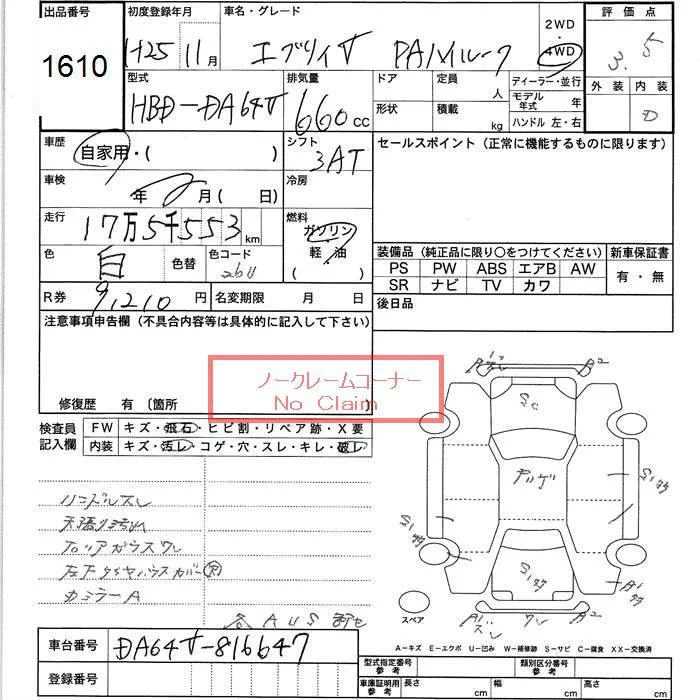 出品番号 初度登録年月 車名・グレード 2WD 評価点
1610 H25 11月 エブリイV PAハイルーフ ・ 4WD 3.5
外装 内装
D
型式 排気量 ドア 定員 人 ディーラー・並行
HBD-DA64V 660cc 形状 積載 kg モデル年式 年
ハンドル 左・右
車歴 自家用・( ) シフト 3AT セールスポイント(正常に機能するものに限ります)
車検 年 月( 日) 冷房
走行 17万5千553km 燃料 ガソリン
軽油
色 白 色替 色コード 26U
装備品(純正品に限り○をつけてください) 新車保証書
PS PW ABS エアB AW 有・無
SR ナビ TV カワ
R券 9,210円 名変期限 月 日 後日品
注意事項申告欄(不具合内容等は具体的に記入して下さい)
ノークレームコーナー
No Claim
修復歴 有〔箇所
検査員記入欄 FW キズ・飛石・ヒビ割・リペア跡・X要
内装 キズ・汚レ・コゲ・穴・スレ・キレ・破レ
ハンドルスレ
天張り汚れ
カミラーA
各AUS部セ
A2
S1サウ
S1サウ
S1サウ
A1サウ
A1スレ ワレ A2
スペア
A-キズ E-エクボ U-凹み W-補修跡 S-サビ C-腐食 XX-交換済
車台番号 DA64V-816647
登録番号
型式指定番号 参考 類別区分番号 参考
車庫証明用 参考 長さ cm 幅 cm 高さ cm